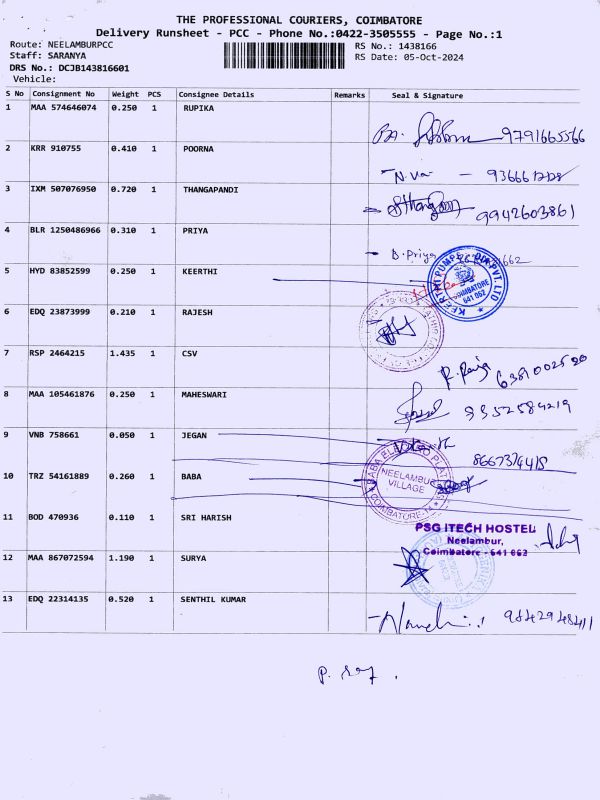 THE PROFESSIONAL COURIERS, COIMBATORE
Delivery Runsheet - PCC - Phone No.:0422-3505555 - Page No.:1
Route: NEELAMBURPCC RS No.: 1438166
Staff: SARANYA RS Date: 05-Oct-2024
DRS No.: DCJB143816601
Vehicle:
S No Consignment No Weight PCS Consignee Details Remarks Seal & Signature
1 MAA 574646074 0.250 1 RUPIKA
9791665566
2 KRR 910755 0.410 1 POORNA
N.Va -
3 IXM 507076950 0.720 1 THANGAPANDI
9942603861
4 BLR 1250486966 0.310 1 PRIYA
- D.Priya
5 HYD 83852599 0.250 1 KEERTHI
KEERTHI PUMPS INDIA PVT. LTD
COIMBATORE
641 062
6 EDQ 23873999 0.210 1 RAJESH
7 RSP 2464215 1.435 1 CSV
6381002520
8 MAA 105461876 0.250 1 MAHESWARI
9352584219
9 VNB 758661 0.050 1 JEGAN
8667374415
10 TRZ 54161889 0.260 1 BABA
NEELAMBUR
VILLAGE
COIMBATORE-14
11 BOD 470936 0.110 1 SRI HARISH
PSG ITECH HOSTEL
Neelambur,
Coimbatore - 641 062
12 MAA 867072594 1.190 1 SURYA
13 EDQ 22314135 0.520 1 SENTHIL KUMAR
9842948411